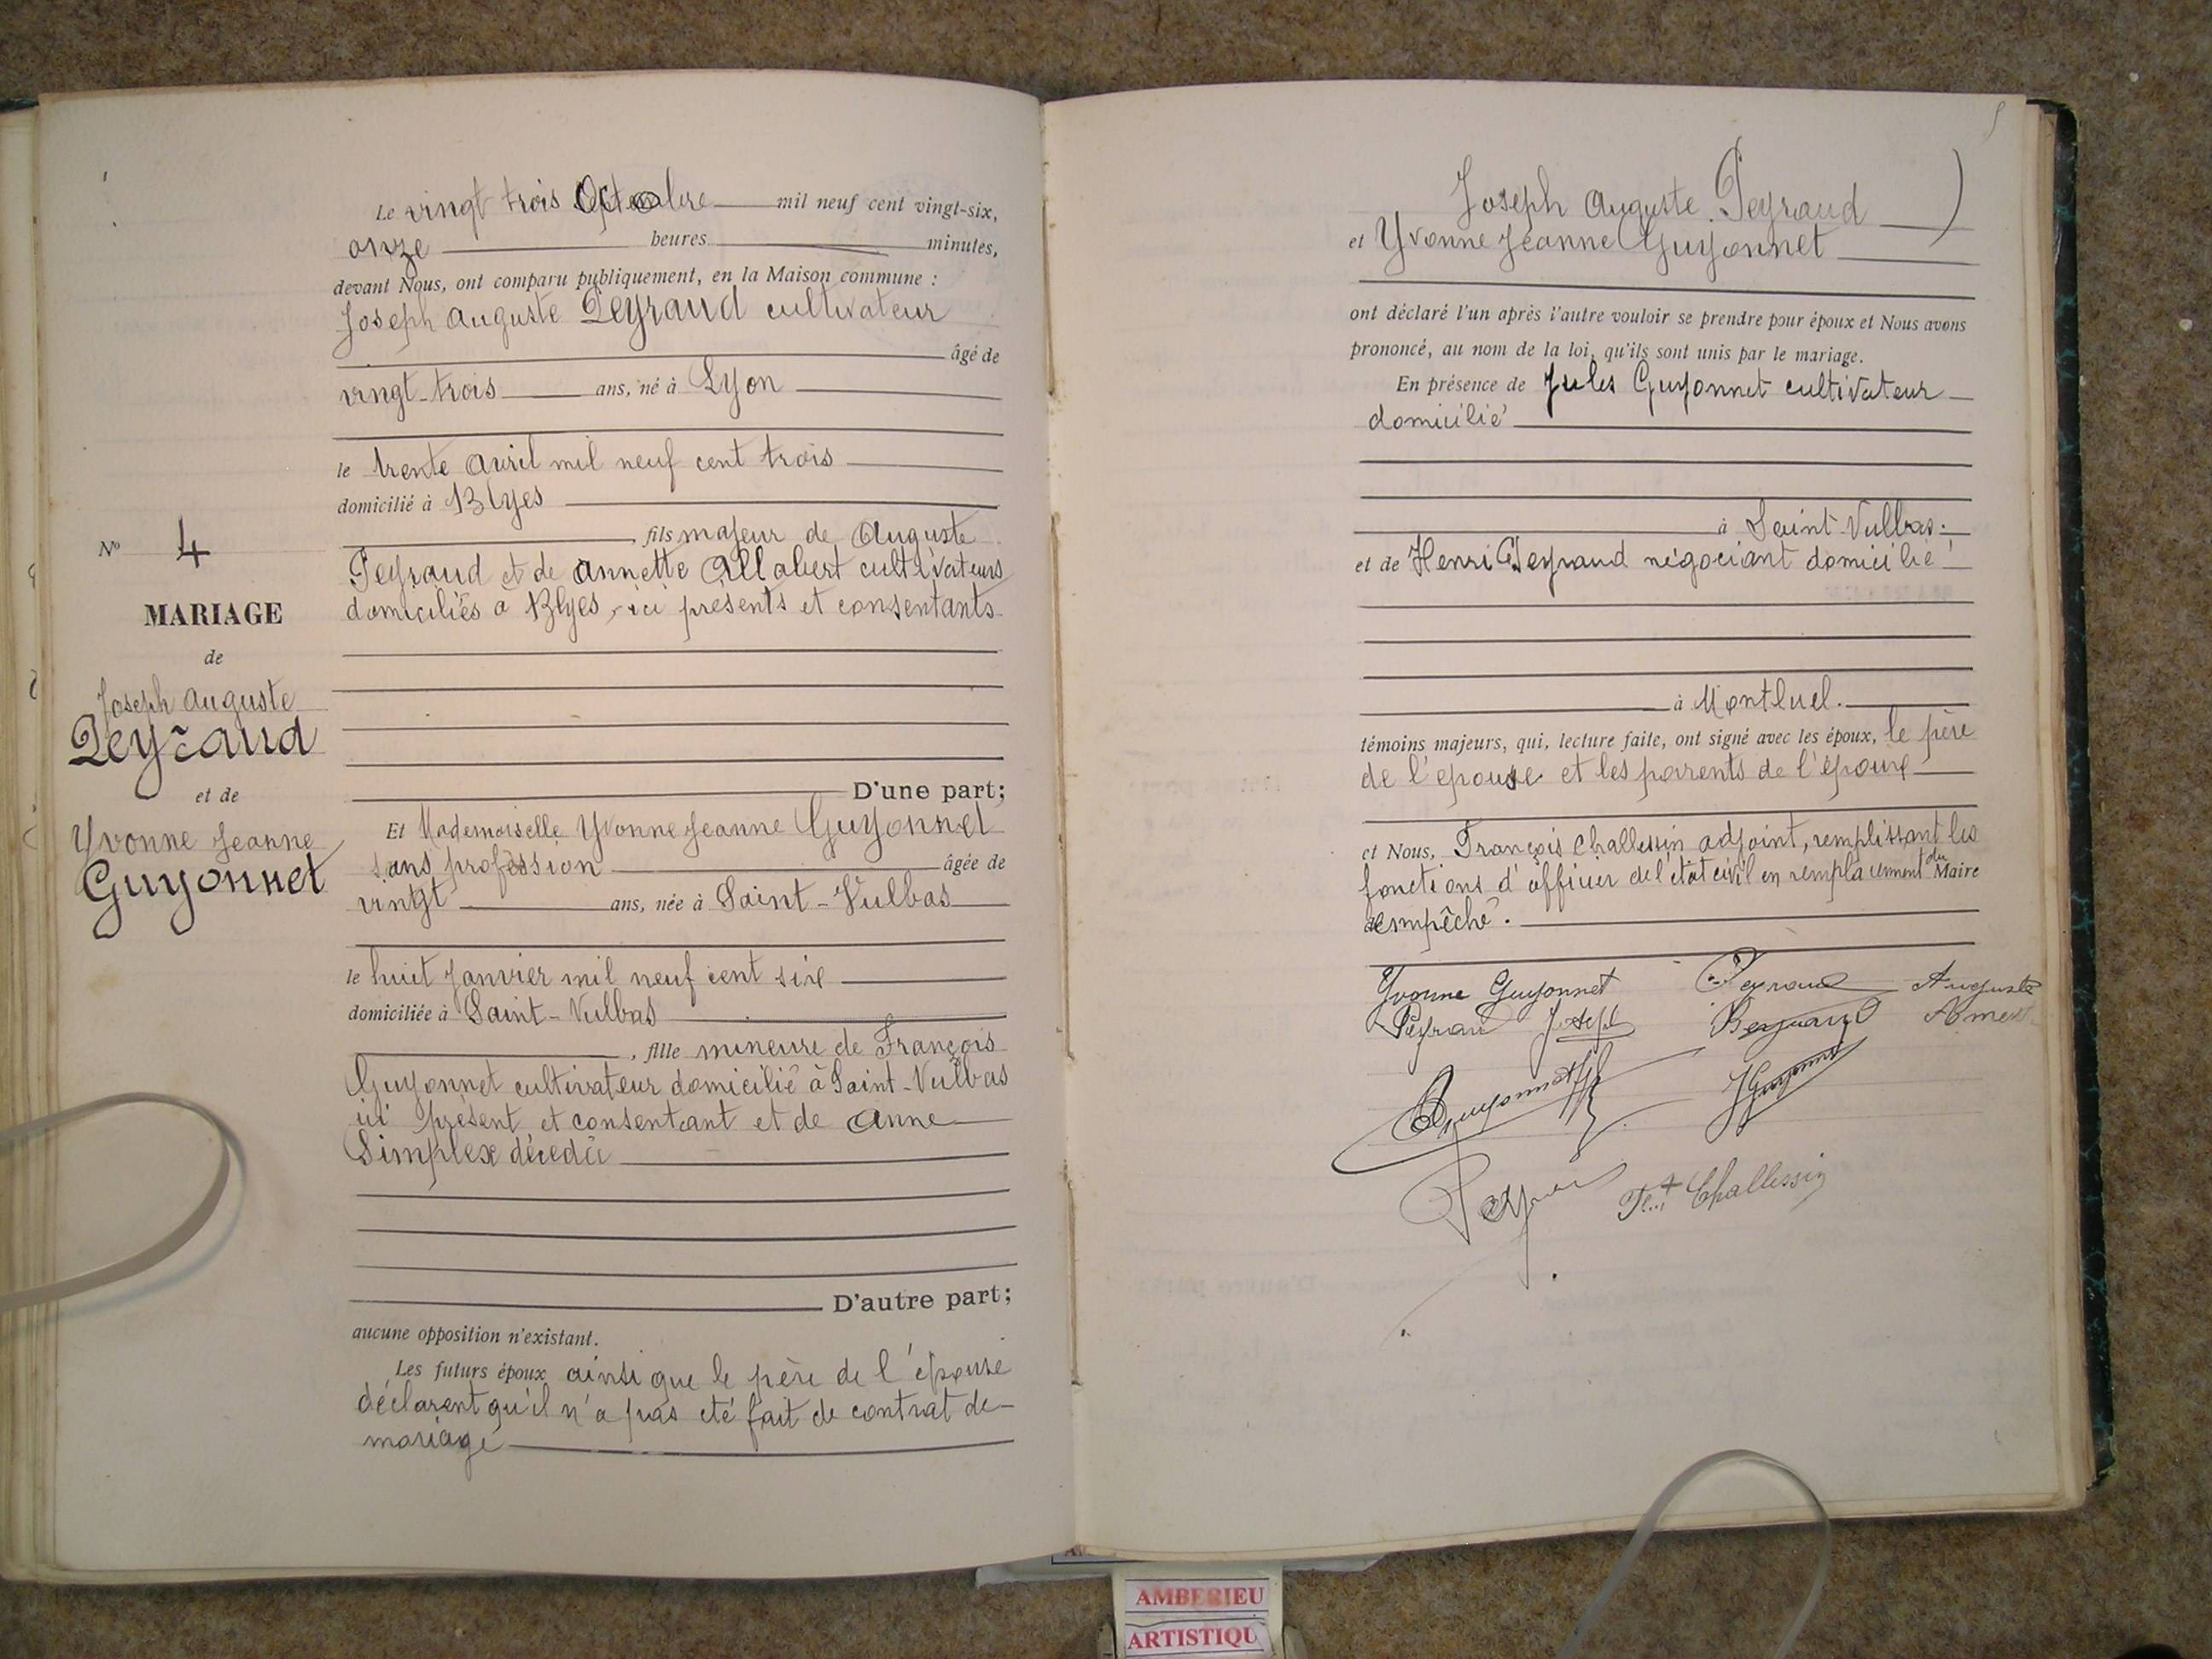 Le vingt trois Octobre mil neuf cent vingt-six,
onze heures minutes,
devant Nous, ont comparu publiquement, en la Maison commune :
Joseph Auguste Peyraud cultivateur
âgé de
vingt-trois ans, né à Lyon
le trente Avril mil neuf cent trois
domicilié à Blyes
, fils majeur de Auguste
Peyraud et de Annette Allabert cultivateurs
domiciliés à Blyes, ici présents et consentants
D'une part;
Et Mademoiselle Yvonne Jeanne Guyonnet
sans profession âgée de
vingt ans, née à Saint-Vulbas
le huit Janvier mil neuf cent six
domiciliée à Saint-Vulbas
, fille mineure de François
Guyonnet cultivateur domicilié à Saint-Vulbas
ici présent et consentant et de Anne
Simplex décédée
D'autre part;
aucune opposition n'existant.
Les futurs époux ainsi que le père de l'épouse
déclarent qu'il n'a pas été fait de contrat de
mariage
N° 4
MARIAGE
de
Joseph Auguste
Peyraud
et de
Yvonne Jeanne
Guyonnet
Joseph Auguste Peyraud
et Yvonne Jeanne Guyonnet
ont déclaré l'un après l'autre vouloir se prendre pour époux et Nous avons
prononcé, au nom de la loi, qu'ils sont unis par le mariage.
En présence de Jules Guyonnet cultivateur
domicilié
à Saint-Vulbas
et de Henri Peyraud négociant domicilié
à Montluel.
témoins majeurs, qui, lecture faite, ont signé avec les époux, le père
de l'épouse et les parents de l'époux
et Nous, François Challessin adjoint, remplissant les
fonctions d'officier de l'état civil en remplacement du Maire
empêché.
Yvonne Guyonnet Peyraud Auguste
Peyrau Joseph
Guyonnet JGuyonnet
Challessin
AMBERIEU
ARTISTIQU